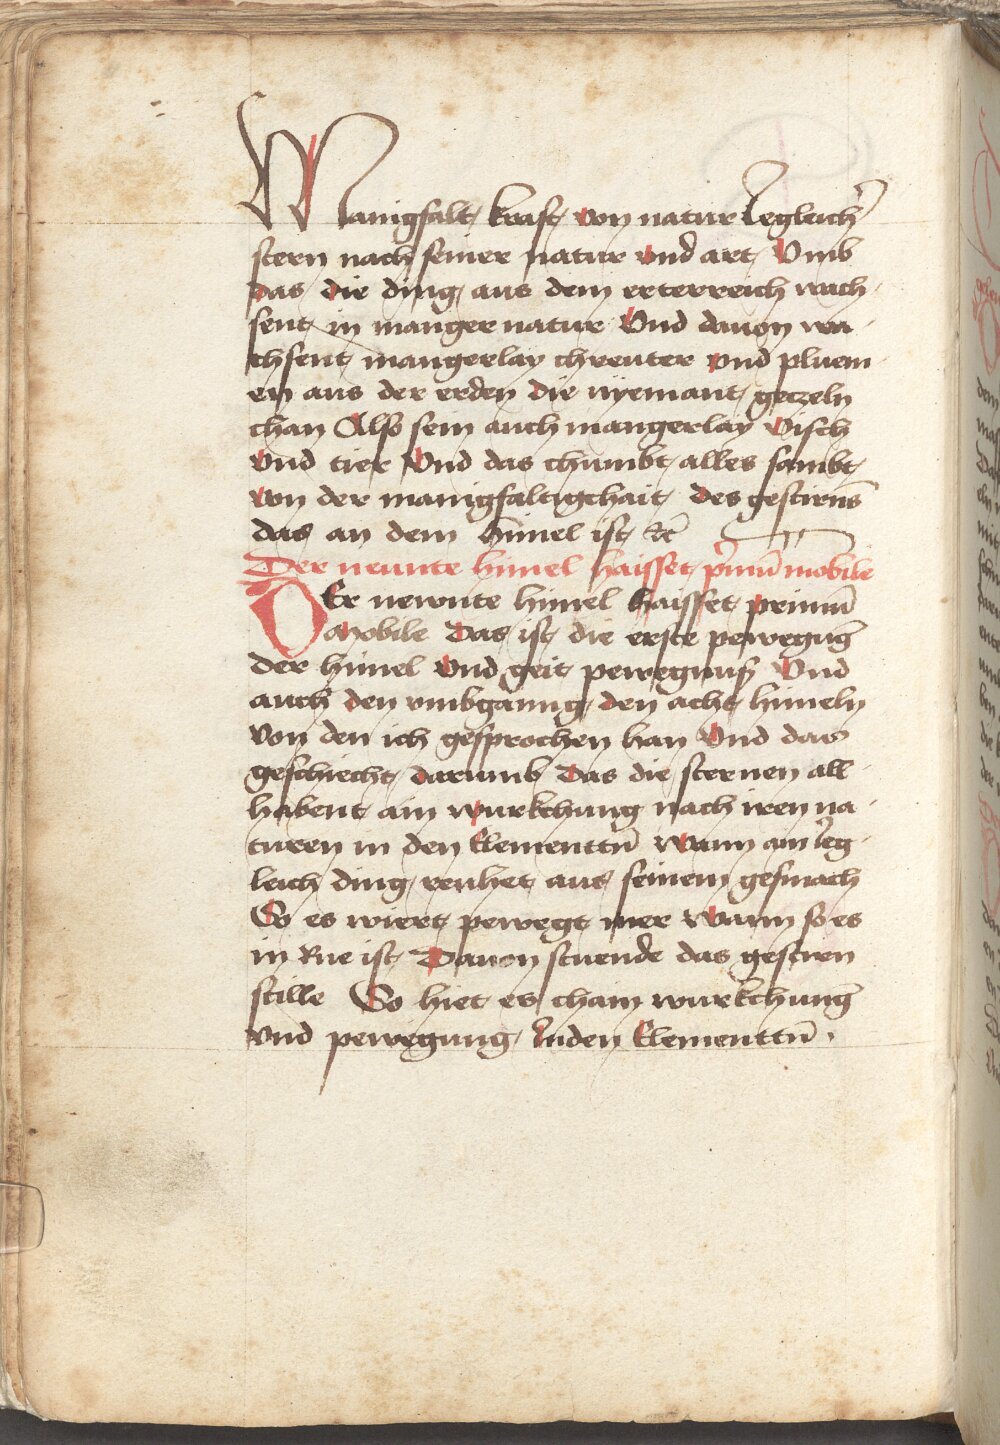 Manigfalt kraft von natur Iegleich̄
stern nach seiner natur vnd art Vmb
das die ding aus dem erterreich wach-
sent in manger natur Vnd dauon wa-
chsent mangerlay chreuter vnd pluem-
en aus der erden die nyemant getzeln
chan Also sein auch mangerlay Visch
vnd tier Vnd das chumbt alles sambt
von der manigfaltigchait des gestirns̄
das an dem himel ist etc̄
Der neunte himel haisset p̄imū mobile
DEr newnte himel haisset primū
mobile Das ist die erste pewegūg
der himel Vnd geit pewegnuſs Vnd
auch den vmbganng den acht himeln
Von den ich gesprochen han Vnd das
geschiecht darumb Das die sternen all-
habent ain wurkchung nach iren na-
turen in den Elementtn̄ Wann ain Ieg-
leich ding reuhet aus seinem gesmach
So es wiert pewegt mer Wann so es
in Rue ist Dauon stuende das gestirn
stille So hiet es chain wurkchung
Vnd pewegung Inden Elementtn̄ .